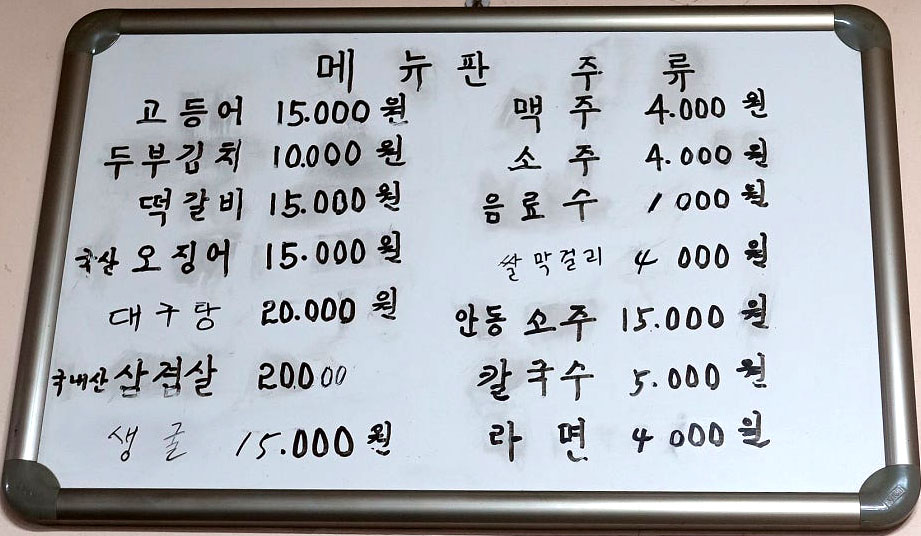 메뉴판
고등어 15.000 원
두부김치 10.000 원
떡갈비 15.000 원
국산 오징어 15.000 원
대구탕 20.000 원
국내산 삼겹살 20000
생굴 15.000 원
주류
맥주 4.000 원
소주 4.000 원
음료수 1 000 원
쌀막걸리 4 000 원
안동 소주 15.000 원
칼국수 5.000 원
라면 4 000 원